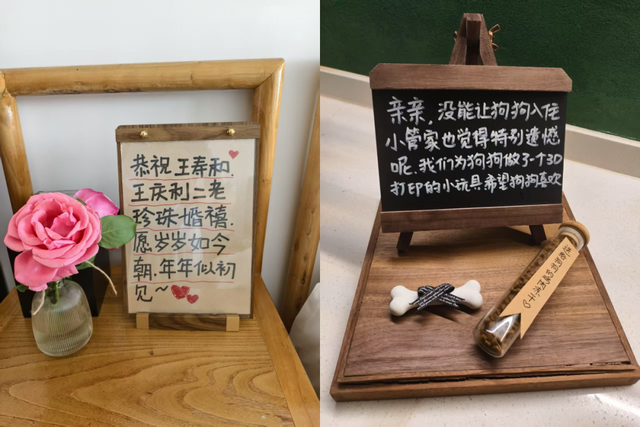 恭祝王寿和、
王庆利二老
珍珠婚禧.
愿岁岁如今
朝.年年似初
见~
亲亲,没能让狗狗入住
小管家也觉得特别遗憾
呢.我们为狗狗做了一个3D
打印的小玩具希望狗狗喜欢